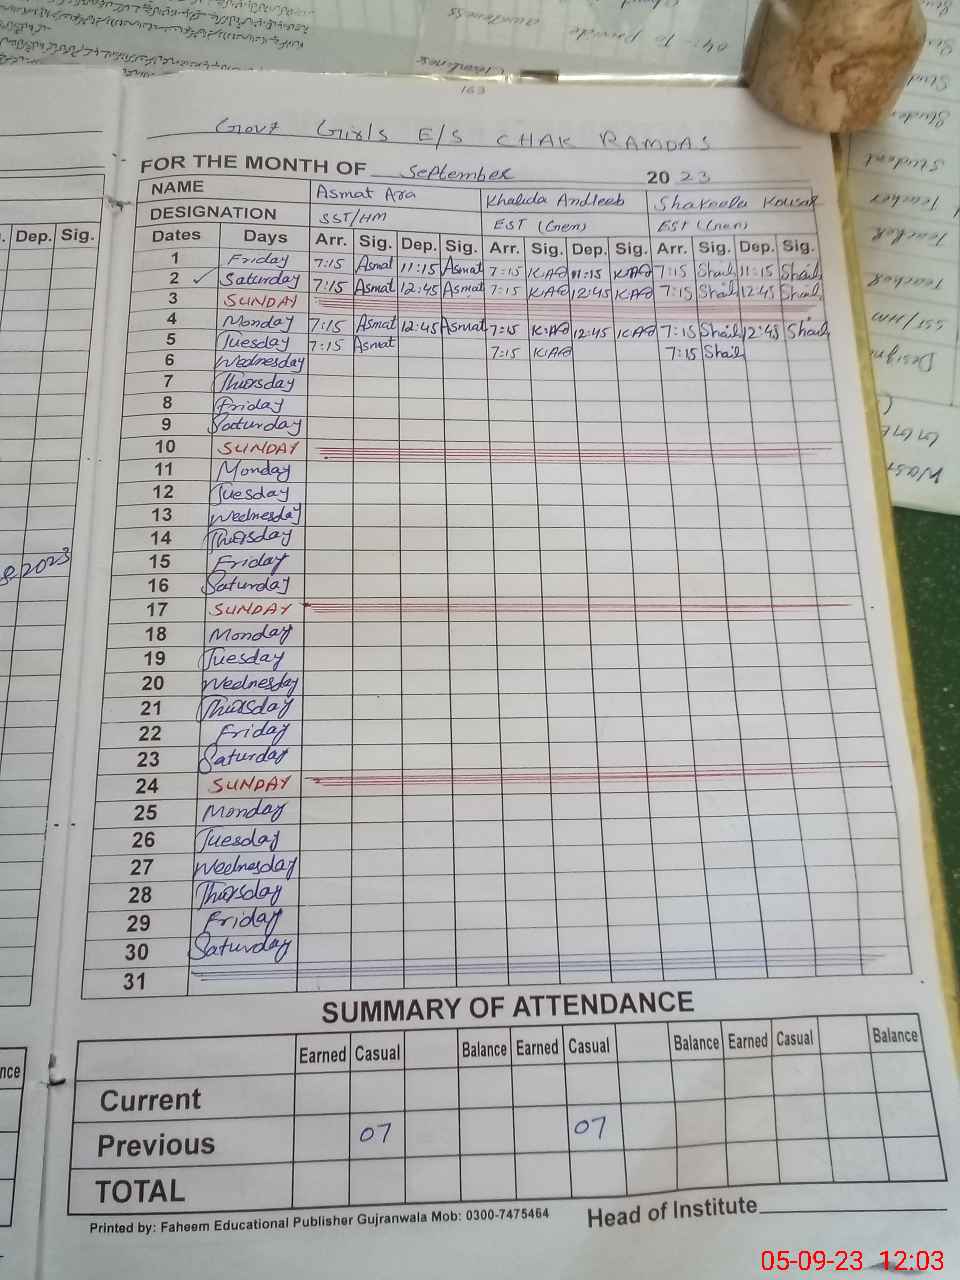 163
Govt Girls E/S CHAK RAMDAS
FOR THE MONTH OF September 2023
NAME Asmat Ara Khalida Andleeb Shakeela Kousar
DESIGNATION SST/HM EST (Gen) EST (Gen)
Dates Days Arr. Sig. Dep. Sig. Arr. Sig. Dep. Sig. Arr. Sig. Dep. Sig.
1 Friday 7:15 Asmat 11:15 Asmat 7:15 K.A 11:15 K.A 7:15 Shail 11:15 Shail
2 ✓ Saturday 7:15 Asmat 12:45 Asmat 7:15 K.A 12:45 K.A 7:15 Shail 12:45 Shail
3 SUNDAY
4 Monday 7:15 Asmat 12:45 Asmat 7:15 K.A 12:45 K.A 7:15 Shail 12:45 Shail
5 Tuesday 7:15 Asmat 7:15 K.A 7:15 Shail
6 Wednesday
7 Thursday
8 Friday
9 Saturday
10 SUNDAY
11 Monday
12 Tuesday
13 Wednesday
14 Thursday
15 Friday
16 Saturday
17 SUNDAY
18 Monday
19 Tuesday
20 Wednesday
21 Thursday
22 Friday
23 Saturday
24 SUNDAY
25 Monday
26 Tuesday
27 Wednesday
28 Thursday
29 Friday
30 Saturday
31
SUMMARY OF ATTENDANCE
Earned Casual Balance Earned Casual Balance Earned Casual Balance
Current
Previous 07 07
TOTAL
Printed by: Faheem Educational Publisher Gujranwala Mob: 0300-7475464 Head of Institute
Dep. Sig.
2023
nce
04:- To provide
Cleanliness
Student
Student
Teacher
Teacher
Teacher
SST/HM
05-09-23 12:03